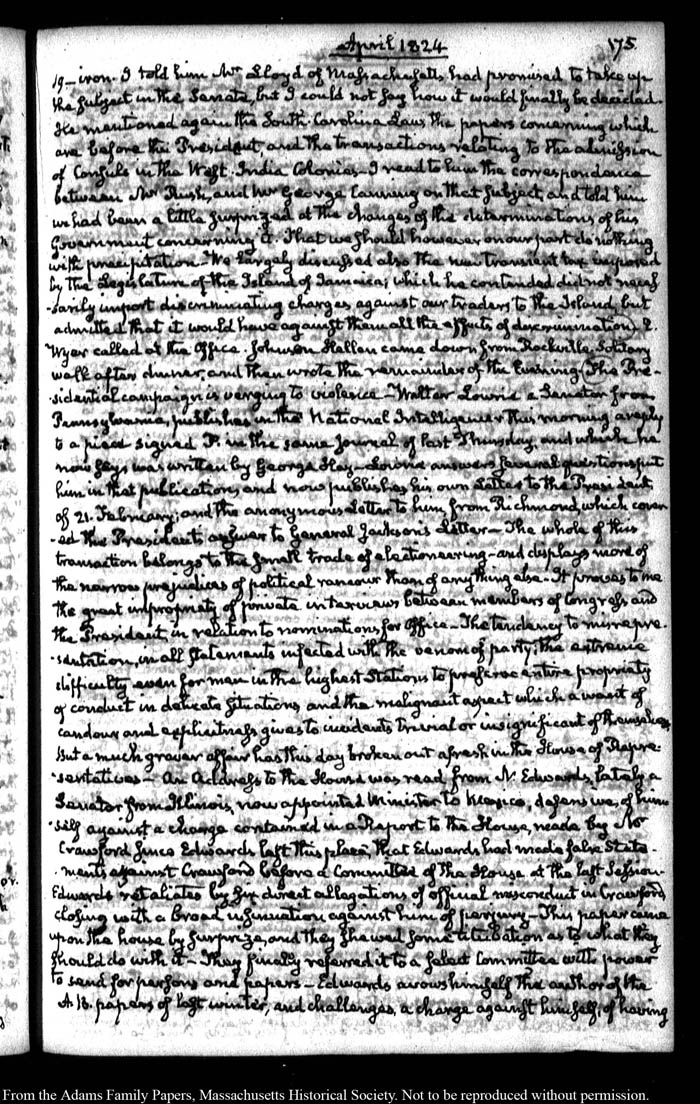 April 1824
175.
19 – iron. I told him Mr Lloyd of Massachusetts had promised to take up
the subject in the Senate, but I could not say how it would finally be decided.
He mentioned again the South-Carolina Law, the papers concerning which
are before the President, and the transactions relating to the admission
of Consuls in the West-India Colonies – I read to him the correspondence
between Mr Rush, and Mr George Canning on that subject, and told him
we had been a little surprized at the changes of the determinations of his
Government concerning it. That we should however on our part do nothing
with precipitation. We largely discussed also the new transient tax imposed
by the Legislature of the Island of Jamaica; which he contended did not neces-
-sarily import discriminating charges against our traders to the Island, but
admitted that it would have against them all the effects of discrimination. E.
Wyer called at the Office. Johnson Hellen came down from Rockville. Solitary
walk after dinner, and then wrote the remainder of the Evening. The Pre-
-sidential campaign is verging to violence – Walter Lowrie a Senator from
Pennsylvania, publishes in the National Intelligencer this morning a reply
to a piece signed P. in the same Journal of last Thursday, and which he
now says was written by George Hay – Lowrie answers several questions put
him in that publication, and now publishes his own Letter to the President,
of 21. February; and the anonymous Letter to him from Richmond, which cover-
-ed the President's answer to General Jackson's Letter – The whole of this
transaction belongs to the small trade of electioneering – and displays more of
the narrow prejudices of political rancour than of any thing else – It proves to me
the great impropriety of private interviews between members of Congress and
the President, in relation to nominations for Office – The tendency to misrepre-
-sentation, in all statements infected with the venom of party; the extreme
difficulty even for men in the highest Stations to preserve entire propriety
of conduct in delicate situations, and the malignant aspect which a want of
candour and explicitness gives to incidents trivial or insignificant of themselves.
But a much graver affair has this day broken out afresh in the House of Repre-
-sentatives – An Address to the House was read from N. Edwards, lately a
Senator from Illinois, now appointed Minister to Mexico, defensive, of him-
-self against a charge contained in a Report to the House, made by Mr
Crawford since Edwards left this place, that Edwards had made false State-
-ments against Crawford before a Committee of the House at the last Session –
Edwards retaliates by six direct allegations of official misconduct in Crawford,
closing with a broad insinuation against him of perjury – This paper came
upon the house by surprize, and they shewed some titubation as to what they
should do with it – They finally referred it to a select Committee with power
to send for persons and papers – Edwards avows himself the author of the
A.B. papers of last winter, and challenges, a charge against himself, of having
From the Adams Family Papers, Massachusetts Historical Society. Not to be reproduced without permission.